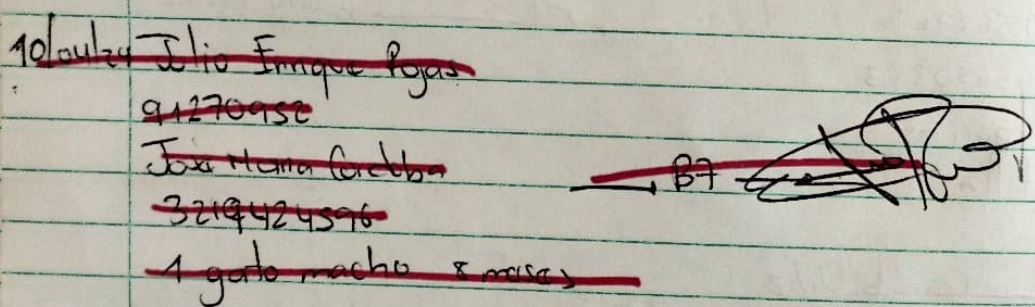 10/04/24 Julio Enrique Rojas
91270952
Jose Maria Cordoba
→ B7
3219424596
1 gato macho 8 meses